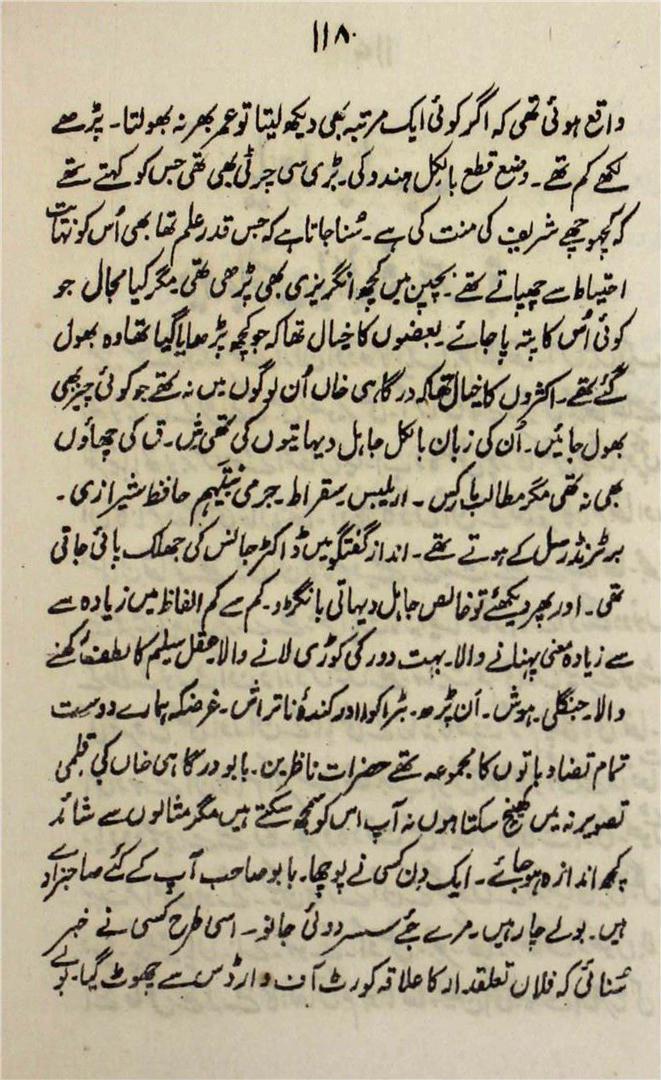 ۱۱۸
واقع ہوئی تھی کہ اگر کوئی ایک مرتبہ بھی دیکھ لیتا تو عمر بھر نہ بھولتا۔ پڑھے
لکھے کم تھے۔ وضع قطع بالکل ہندو کی۔ بڑی سی چرٹی بھی تھی جس کو کہتے تھے
کہ کچھوچھے شریف کی منت کی ہے۔ سُنا جاتا ہے کہ جس قدر علم تھا بھی اُس کو نہایت
احتیاط سے چھپاتے تھے۔ بچپن میں کچھ انگریزی بھی پڑھی تھی مگر کیا مجال جو
کوئی اُس کا پتہ پا جائے۔ بعضوں کا خیال تھا کہ جو کچھ پڑھایا گیا تھا وہ بھول
گئے تھے۔ اکثروں کا خیال تھا کہ درگاہی خاں اُن لوگوں میں نہ تھے جو کوئی چیز بھی
بھول جائیں۔ اُن کی زبان بالکل جاہل دیہاتیوں کی تھی ش۔ ق کی چھاؤں
بھی نہ تھی مگر مطالب بلر کیس۔ اریلیس۔ سقراط۔ جرمی بنتیہم حافظ شیرازی۔
برٹرنڈرسل کے ہوتے تھے۔ انداز گفتگو میں ڈاکٹر جانسن کی جھلک پائی جاتی
تھی۔ اور پھر دیکھئے تو خالص جاہل دیہاتی بانگڑو۔ کم سے کم الفاظ میں زیادہ سے
سے زیادہ معنی پہنانے والا۔ بہت دور کی کوڑی لانے والا۔ عقل سلیم کا لطف رکھنے
والا۔ جنگلی۔ ہوش۔ اَن پڑھ۔ بڑا کوا اور کندۂ ناتراش۔ غرضکہ ہمارے دوست
تمام تضاد باتوں کا مجموعہ تھے حضرات ناظرین۔ بابو درگاہی خاں کی قلمی
تصویر نہ میں کھینچ سکتا ہوں نہ آپ اس کو سمجھ سکتے ہیں مگر مثالوں سے شائد
کچھ اندازہ ہو جائے۔ ایک دن کسی نے پوچھا۔ بابو صاحب آپ کے کئے صاحبزادے
ہیں۔ بولے چار ہیں۔ مرے جئے دوئی جانو۔ اسی طرح کسی نے خبر
سُنائی کہ فلاں تعلقدار کا علاقہ کورٹ آف وارڈس سے چھوٹ گیا۔ بولے